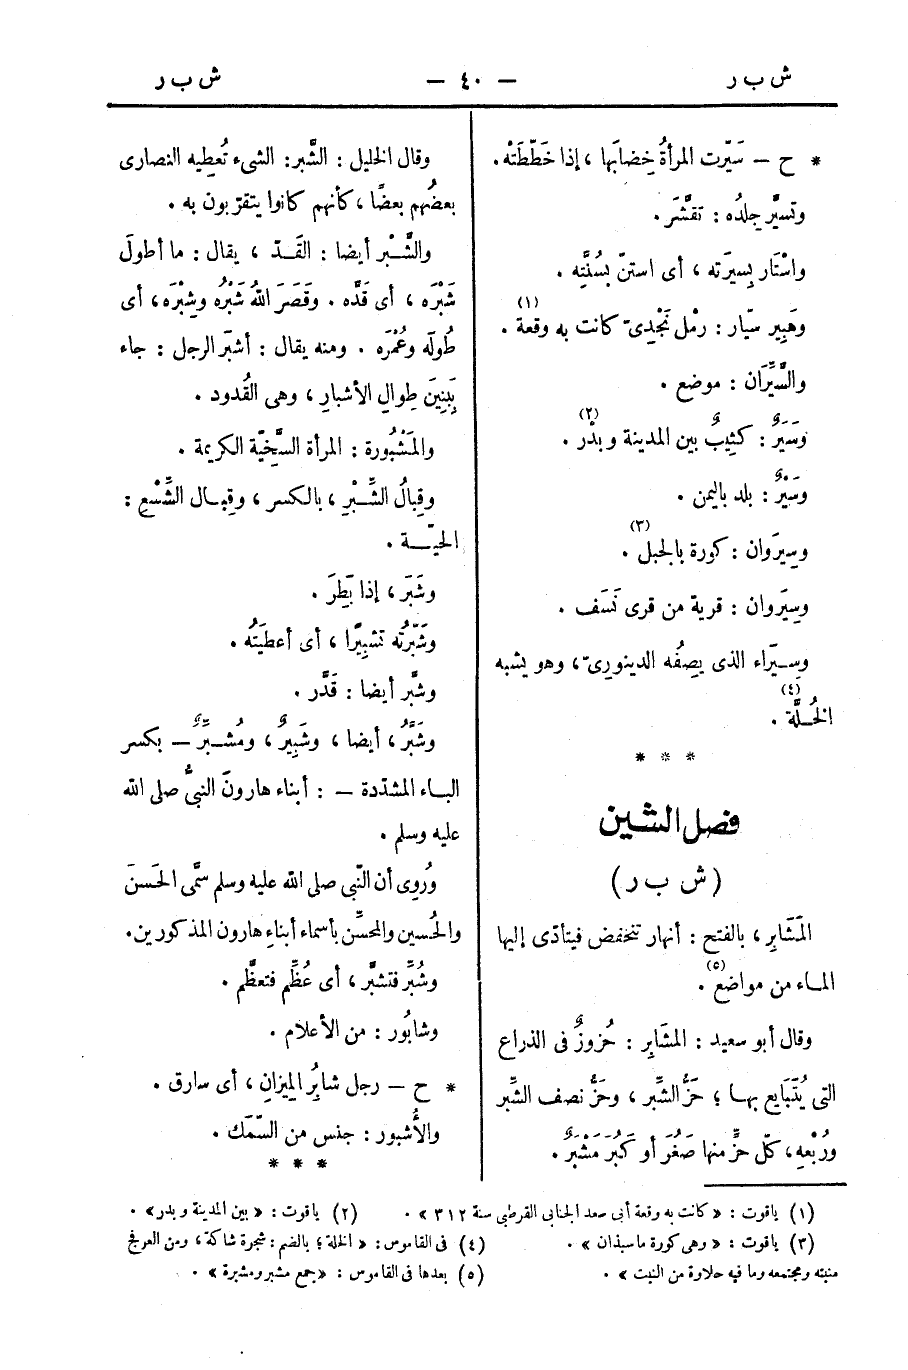 ش ب ر — ٤٠ — ش ب ر
* ح — سَيّرت المرأةُ خِضابَها ، إذا خَطَّطَتْه .
وتسيَّر جلدُه : تقشَّرَ .
واسْتَار بِسيرَته ، أى استنّ بسُنَّتِه .
وهَبِير سيّار : رمْل نَجْدِىّ كانت به وقعة (١) .
والسَّيِّرَان : موضع .
وسَيَرٌ : كثِيبٌ بين المدينة وبدْر (٢) .
وسَيْرٌ : بلد باليمن .
وسِيرَوان : كورة بالجبل (٣) .
وسِيرَوان : قرية من قرى نَسَف .
وسِيَراء الذى يصِفُه الدينورىّ ، وهو يشبه
الخُلَّة (٤) .
* * *
فصل الشين
(ش ب ر)
المَشَابِر ، بالفتح : أنهار تنخفض فيتأدّى إليها
المـاء من مواضع (٥) .
وقال أبو سعيد : المشَابِر : حُزوزٌ فى الذراع
التى يُتَبَايع بهـا ؛ حَزُّ الشِّبر ، وحَزُّ نصف الشِّبر
ورُبْعِه ، كلّ حزٍّ منها صَغُرَ أو كَبُرَ مَشْبَرٌ .
وقال الخليل : الشَّبر : الشىء تُعطِيه النصارى
بعضُهم بعضًا ، كأنهم كانوا يتقرّبون به .
والشَّبْر أيضا : القَـدّ ، يقال : ما أطولَ
شَبْرَه ، أى قَدَّه . وقَصَرَ اللهُ شَبْرُه وشِبْرَه ، أى
طُولَه وعُمْرَه . ومنه يقال : أشبَرَ الرجل : جاء
بَبِنِينَ طِوالِ الأشبارِ ، وهى القُدود .
والمَشْبُورة : المرأة السَّخِيّة الكريمة .
وقِبالُ الشِّبْرِ ، بالكسر ، وقِبـال الشِّسْعِ :
الحيّـة .
وشَبَرَ ، إذا بَطِرَ .
وشَبّرتُه تشبِيرًا ، أى أعطيَتُه .
وشبَّر أيضا : قَدَّر .
وشَبَّرُ ، أيضا ، وشَبِيرٌ ، ومُشَبِّرٌ — بكسر
البـاء المشدّدة — : أبناء هارونَ النبىُّ صلى الله
عليه وسلم .
ورُوِى أن النّبى صلى الله عليه وسلم سمَّى الحَسنَ
والحُسين والمحسِّن بأسماء أبناءِ هارون المذكورين .
وشُبِّر فتشبَّر ، أى عُظِّم فتعظَّم .
وشابُور : من الأعلام .
* ح — رجل شابِرُ الميزانِ ، أى سارق .
والأُشبور : جنس من السّمَك .
* * *
(١) ياقوت : « كانت به وقعة أبى سعد الجنابى القرطبى سنة ٣١٢ » . (٢) ياقوت : « بين المدينة وبدر » .
(٣) ياقوت : « وهى كورة ماسبذان » . (٤) فى القاموس : « الخلة ؛ بالضم : شجرة شاكة ، ومن العرفج
منبته ومجتمعه وما فيه حلاوة من النبت » . (٥) بعدها فى القاموس : « جمع مشبر ومشبرة » .